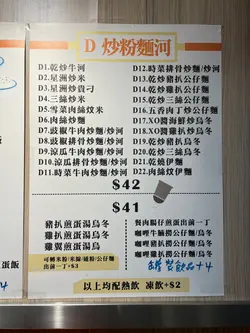 D 炒粉麵河
D1.乾炒牛河
D2.星洲炒米
D3.星洲炒貴刁
D4.三絲炒米
D5.雪菜肉絲炆米
D6.肉絲炒麵
D7.豉椒牛肉炒麵/炒河
D8.豉椒排骨炒麵/炒河
D9.涼瓜牛肉炒麵/炒河
D10.涼瓜排骨炒麵/炒河
D11.時菜牛肉炒麵/炒河
D12.時菜排骨炒麵/炒河
D13.乾炒豬扒公仔麵
D14.乾炒雞扒公仔麵
D15.乾炒三絲公仔麵
D16.五香肉丁炒公仔麵
D17.XO醬海鮮炒烏冬
D18.XO醬雞扒炒烏冬
D19.乾炒牛肉烏冬
D20.乾炒三絲烏冬
D21.乾燒伊麵
D22.肉絲炒伊麵
$42
$41
豬扒煎蛋湯烏冬
雞扒煎蛋湯烏冬
雞翼煎蛋湯烏冬
可轉米粉/米線/通粉/公仔麵
出前一丁+$3
餐肉腸仔煎蛋出前一丁
咖哩牛腩撈公仔麵
咖哩豬扒撈公仔麵
咖哩雞扒撈烏冬
以上均配熱飲 凍飲+$2